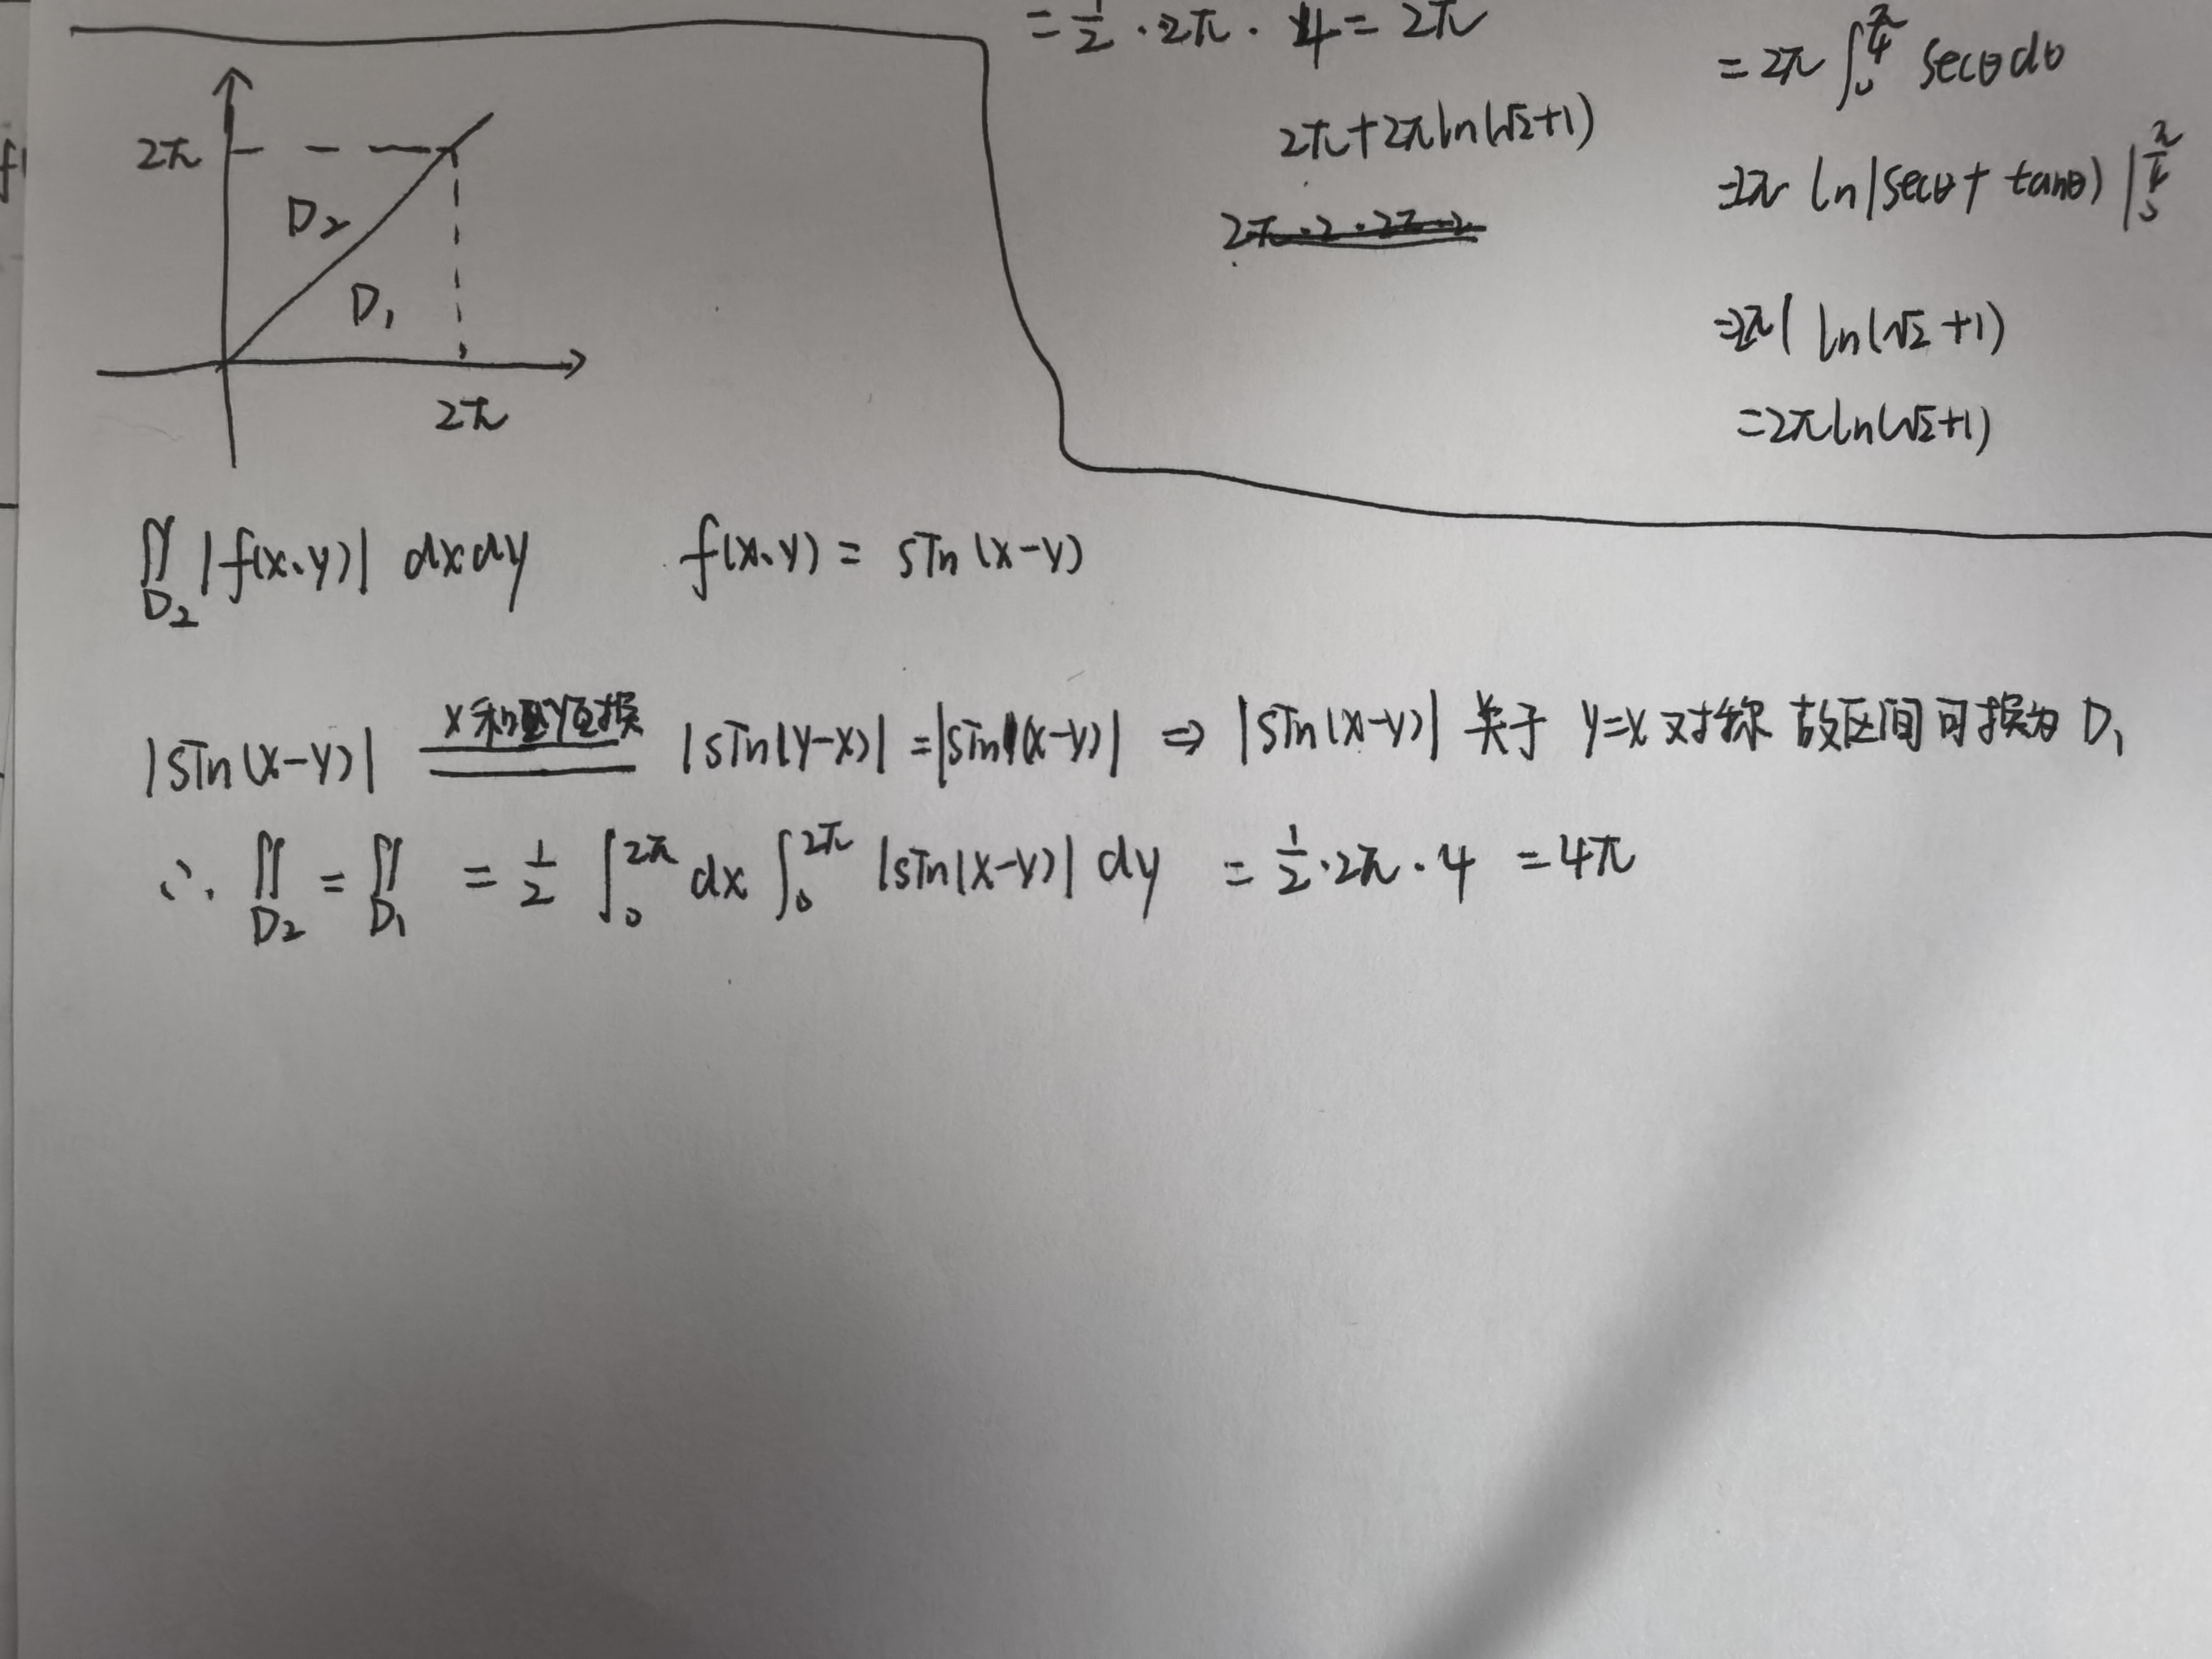 = 1/2 · 2π · 4 = 2π
2π + 2π ln(√2+1)
2π·2·2π·2
= 2π ∫₀^{π/4} secθ dθ
= 2π ln|secθ + tanθ) |₀^{π/4}
= 2π( ln(√2+1)
= 2π ln(√2+1)
2π
D₂
D₁
2π
∬_{D₂} |f(x、y)| dxdy f(x、y) = sin(x-y)
|sin(x-y)| x和y互换 |sin(y-x)| = |sin(x-y)| ⇒ |sin(x-y)| 关于 y=x 对称 故区间可换为 D₁
∴ ∬_{D₂} = ∬_{D₁} = 1/2 ∫₀^{2π} dx ∫₀^{2π} |sin(x-y)| dy = 1/2 · 2π · 4 = 4π